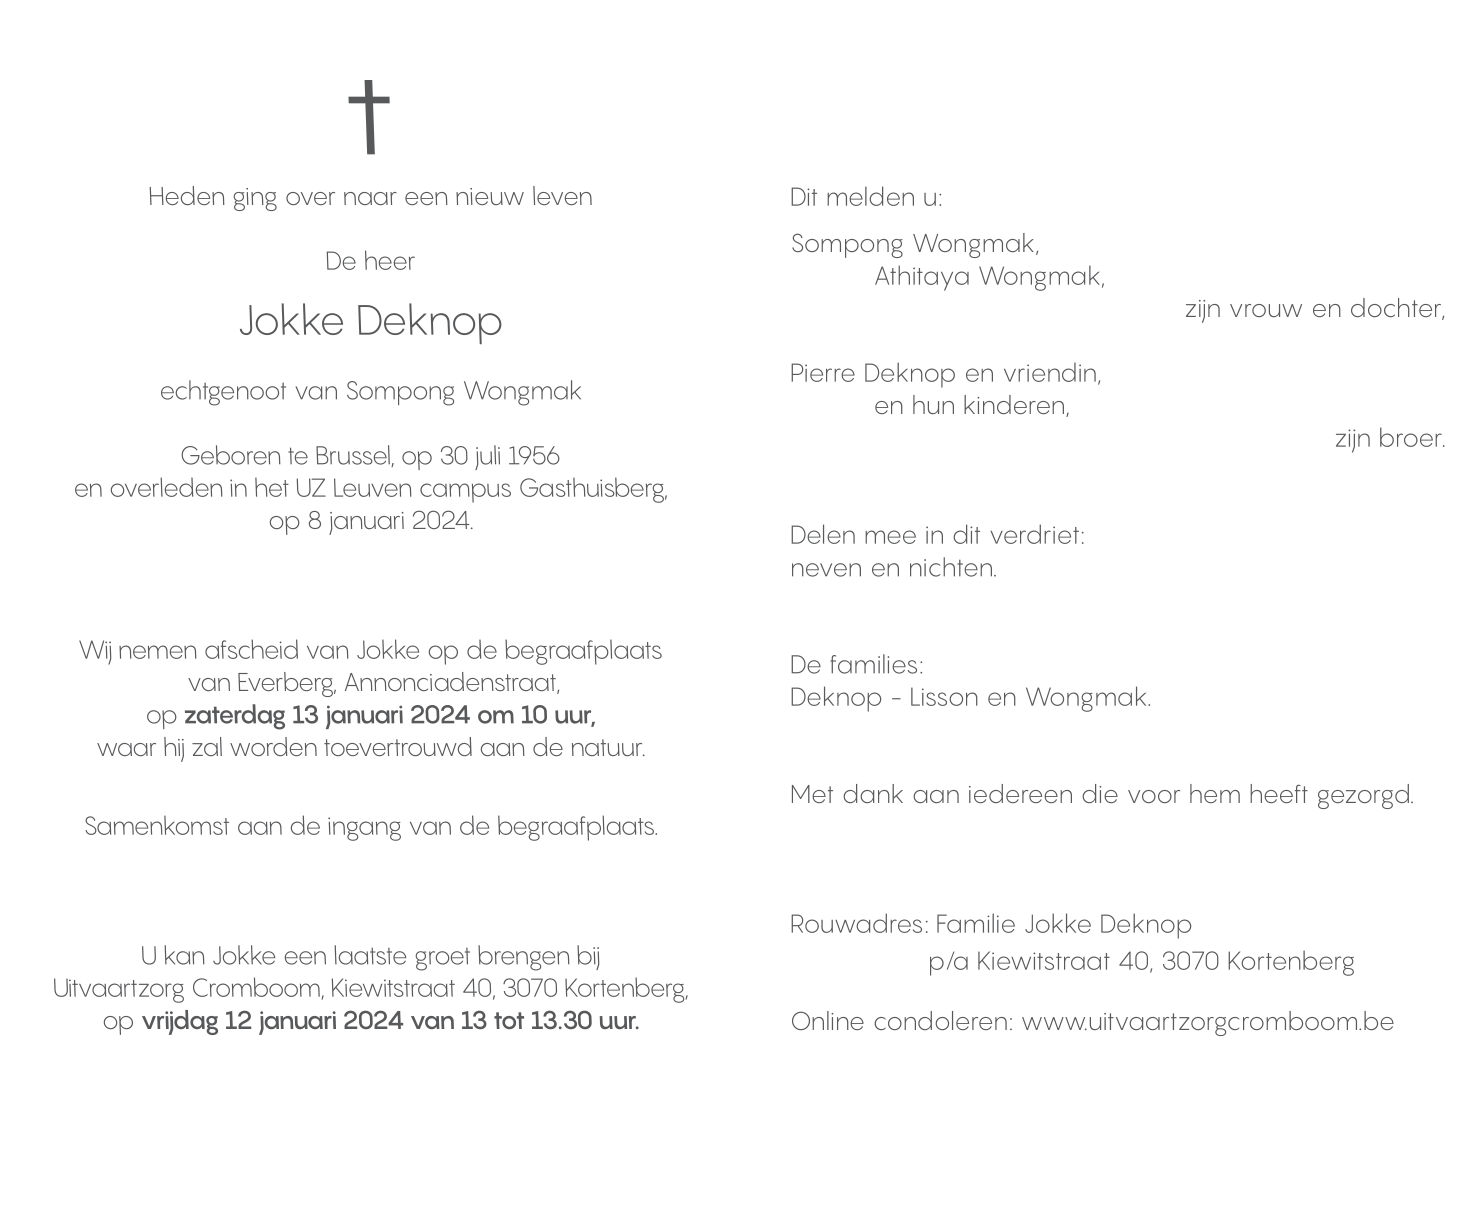 Heden ging over naar een nieuw leven
De heer
Jokke Deknop
echtgenoot van Sompong Wongmak
Geboren te Brussel, op 30 juli 1956
en overleden in het UZ Leuven campus Gasthuisberg,
op 8 januari 2024.
Wij nemen afscheid van Jokke op de begraafplaats
van Everberg, Annonciadenstraat,
op zaterdag 13 januari 2024 om 10 uur,
waar hij zal worden toevertrouwd aan de natuur.
Samenkomst aan de ingang van de begraafplaats.
U kan Jokke een laatste groet brengen bij
Uitvaartzorg Cromboom, Kiewitstraat 40, 3070 Kortenberg,
op vrijdag 12 januari 2024 van 13 tot 13.30 uur.
Dit melden u:
Sompong Wongmak,
Athitaya Wongmak,
zijn vrouw en dochter,
Pierre Deknop en vriendin,
en hun kinderen,
zijn broer.
Delen mee in dit verdriet:
neven en nichten.
De families:
Deknop - Lisson en Wongmak.
Met dank aan iedereen die voor hem heeft gezorgd.
Rouwadres: Familie Jokke Deknop
p/a Kiewitstraat 40, 3070 Kortenberg
Online condoleren: www.uitvaartzorgcromboom.be